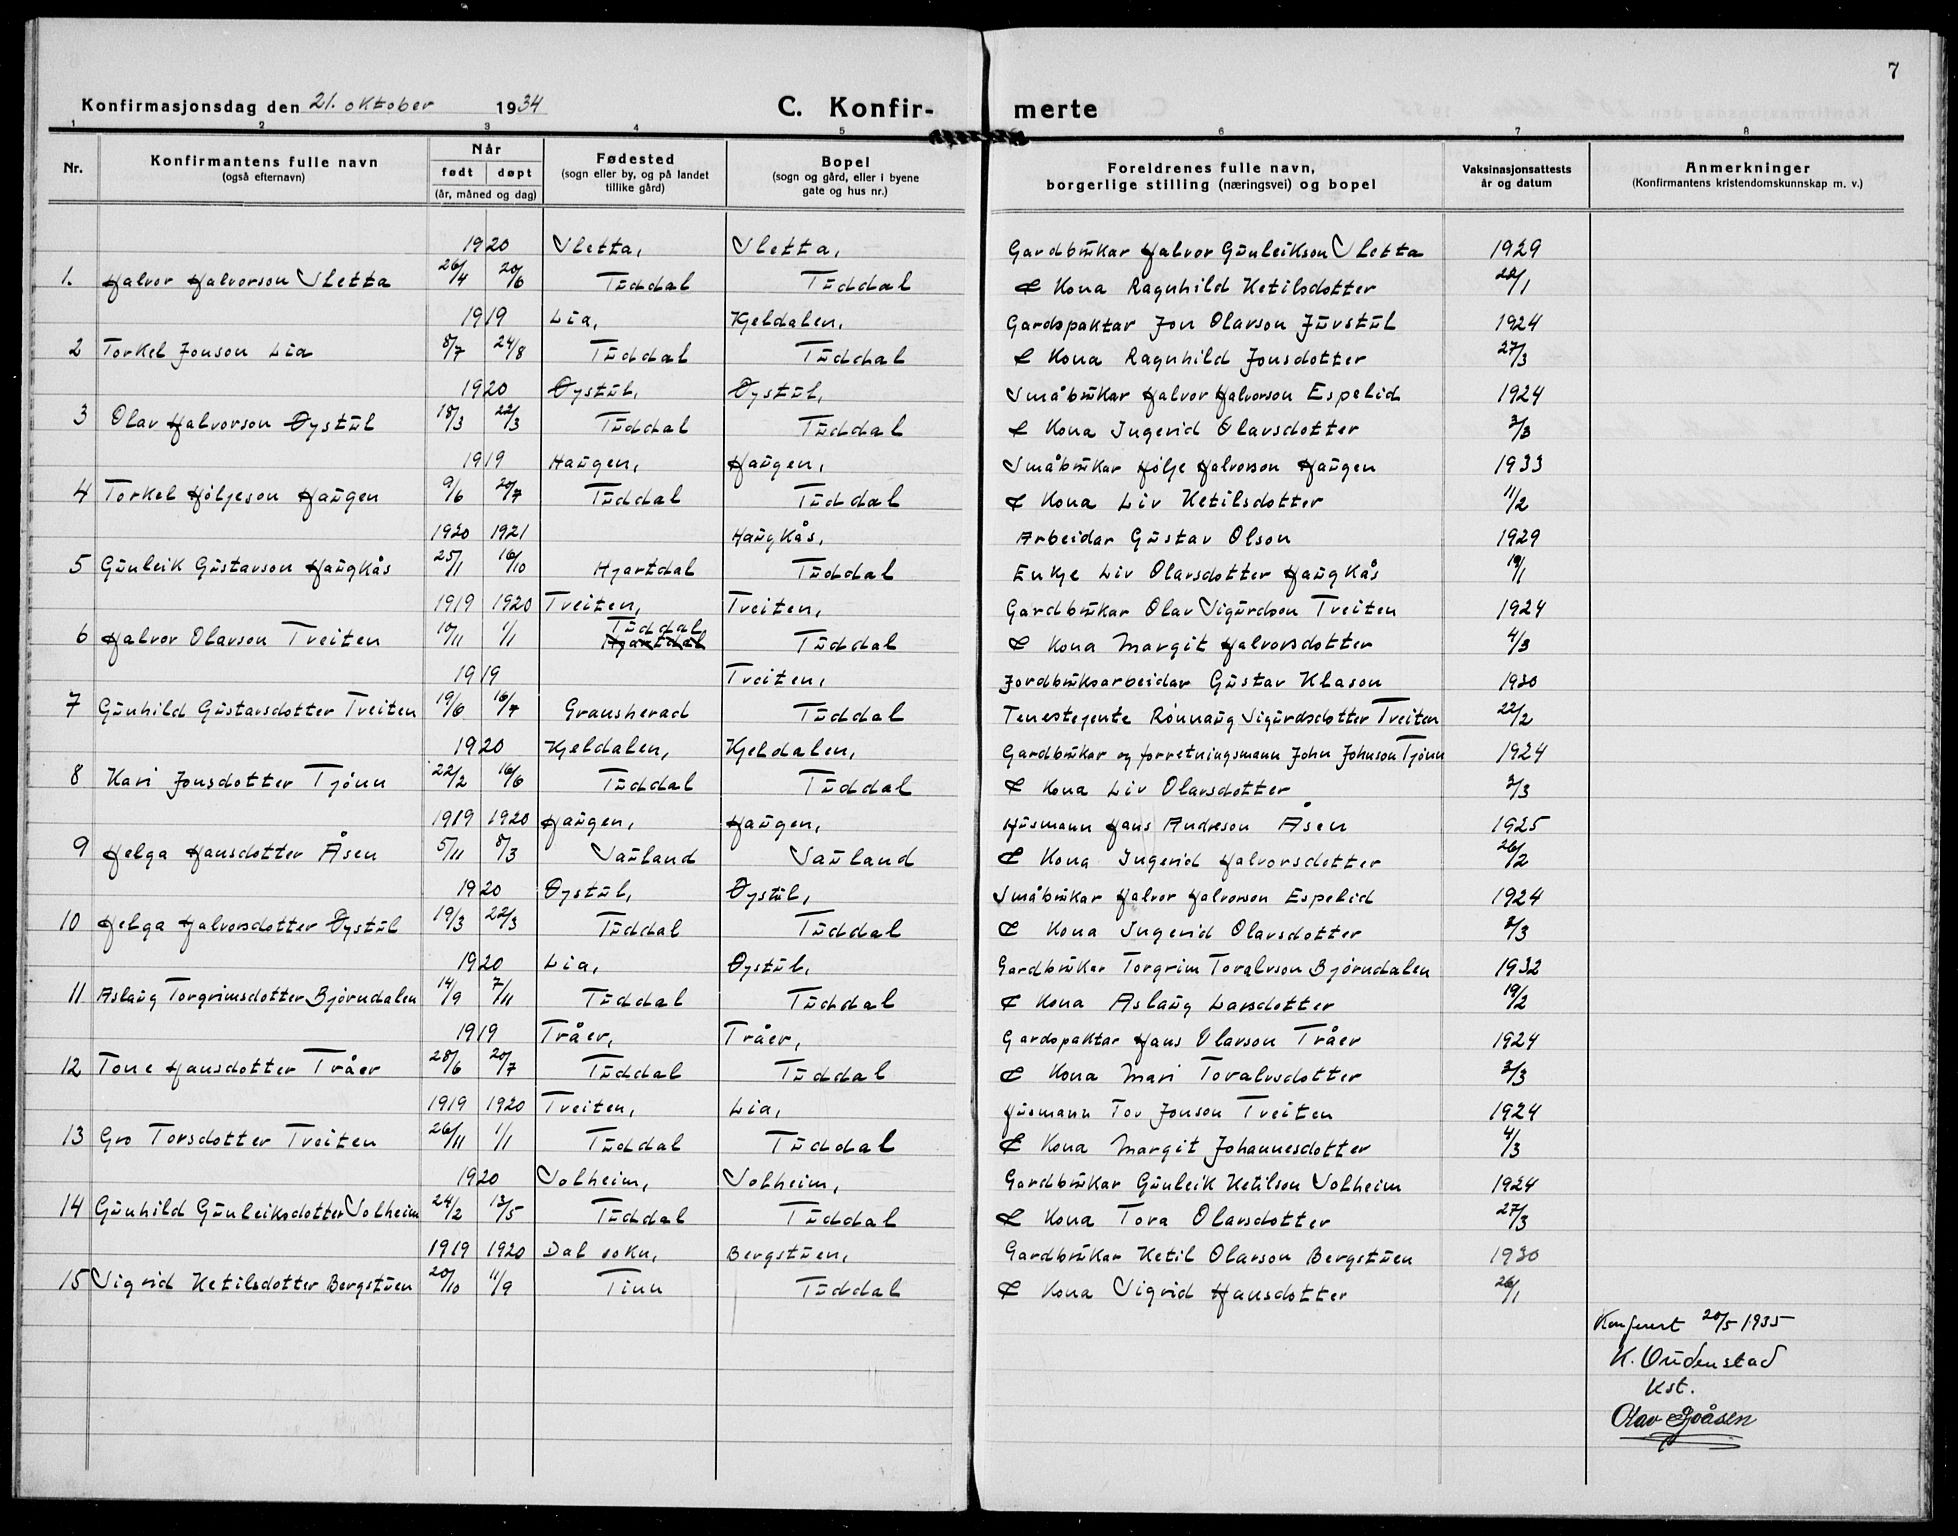 7
Konfirmasjonsdag den 21. oktober 1934 C. Konfir- merte
1 2 3 4 5 6 7 8
Nr. Konfirmantens fulle navn (også efternavn) Når født døpt (år, måned og dag) Fødested (sogn eller by, og på landet tillike gård) Bopel (sogn og gård, eller i byene gate og hus nr.) Foreldrenes fulle navn, borgerlige stilling (næringsvei) og bopel Vaksinasjonsattests år og datum Anmerkninger (Konfirmantens kristendomskunnskap m. v.)
1920 Sletta, Sletta, Gardbrukar Halvor Gunleikson Sletta 1929
1. Halvor Halvorson Sletta 26/4 20/6 Tuddal Tuddal & Kona Ragnhild Ketilsdotter 22/1
1919 Lia, Kjeldalen, Gardspaktar Jon Olavson Juvstul 1924
2 Torkel Jonson Lia 8/7 24/8 Tuddal Tuddal & Kona Ragnhild Jonsdotter 27/3
1920 Øystul, Øystul, Småbrukar Halvor Halvorson Espelid 1924
3 Olav Halvorson Øystul 18/3 22/3 Tuddal Tuddal & Kona Ingerid Olavsdotter 3/3
1919 Haugen, Haugen, Småbrukar Hølje Halvorson Haugen 1933
4 Torkel Høljeson Haugen 9/6 20/7 Tuddal Tuddal & Kona Liv Ketilsdotter 11/2
1920 1921 Haugkås, Arbeidar Gustav Olson 1929
5 Gunleik Gustavson Haugkås 25/1 16/10 Hjartdal Tuddal Enkje Liv Olavsdotter Haugkås 19/1
1919 1920 Tveiten, Tveiten, Gardbrukar Olav Sigurdson Tveiten 1924
6 Halvor Olavson Tveiten 10/11 1/1 Tuddal Hjartdal Tuddal & Kona Margit Halvorsdotter 4/3
1919 Tveiten, Jordbruksarbeidar Gustav Klason 1930
7 Gunhild Gustavsdotter Tveiten 19/6 16/7 Gransherad Tuddal Tenestejente Rønnaug Sigurdsdotter Tveiten 22/2
1920 Kjeldalen, Kjeldalen, Gardbrukar og forretningsmann John Johnson Tjønn 1924
8 Kari Jonsdotter Tjønn 22/2 16/6 Tuddal Tuddal & Kona Liv Olavsdotter 3/3
1919 1920 Haugen, Haugen, Husmann Hans Andreson Åsen 1925
9 Helga Hansdotter Åsen 5/11 8/3 Sauland Sauland & Kona Ingerid Halvorsdotter 26/2
1920 Øystul, Øystul, Småbrukar Halvor Halvorson Espelid 1924
10 Helga Halvorsdotter Øystul 19/3 22/3 Tuddal Tuddal & Kona Ingerid Olavsdotter 3/3
1920 Lia, Øystul, Gardbruker Torgrim Toralvson Bjørndalen 1932
11 Aslaug Torgrimsdotter Bjørndalen 14/9 7/11 Tuddal Tuddal & Kona Aslaug Larsdotter 19/2
1919 Tråer, Tråer, Gardspaktar Hans Olavson Tråer 1924
12 Tone Hansdotter Tråer 28/6 20/7 Tuddal Tuddal & Kona Mari Toralvsdotter 3/3
1919 1920 Tveiten, Lia, Husmann Tov Jonson Tveiten 1924
13 Gro Torsdotter Tveiten 26/11 1/1 Tuddal Tuddal & Kona Margit Johannesdotter 4/3
1920 Solheim, Solheim, Gardbrukar Gunleik Ketilson Solheim 1924
14 Gunhild Gunleiksdotter Solheim 24/2 13/5 Tuddal Tuddal & Kona Tora Olavsdotter 27/3
1919 1920 Dal sokn, Bergstuen, Gardbrukar Ketil Olavson Bergstuen 1930
15 Sigrid Ketilsdotter Bergstuen 20/10 11/9 Tinn Tuddal & Kona Sigrid Hansdotter 26/1
Konferert 20/5 1935
K. Oudenstad
Kst.
Olav